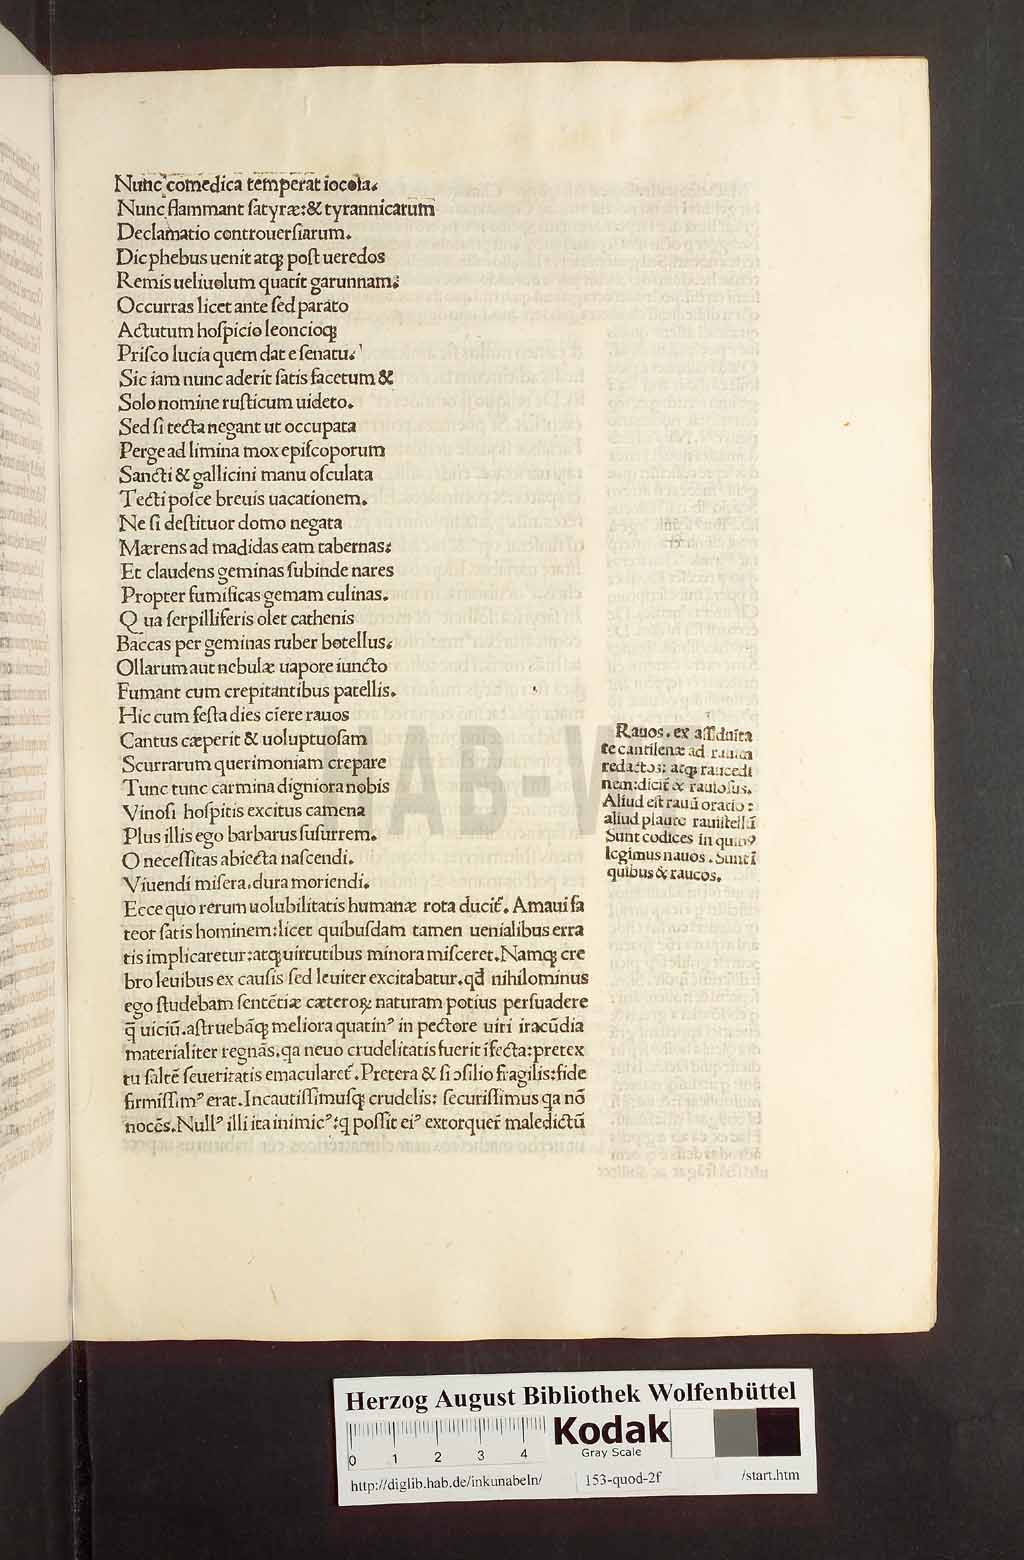 Nunc comedica temperat iocola.
Nunc flammant satyræ:& tyrannicarum
Declamatio controuersiarum.
Dic phebus uenit atq; post ueredos
Remis ueliuolum quatit garunnam:
Occurras licet ante sed parato
Actutum hospicio leoncioq;
Prisco lucia quem dat e senatu.
Sic iam nunc aderit satis facetum &
Solo nomine rusticum uideto.
Sed si tecta negant ut occupata
Perge ad limina mox episcoporum
Sancti & gallicini manu osculata
Tecti posce breuis uacationem.
Ne si destituor domo negata
Mærens ad madidas eam tabernas:
Et claudens geminas subinde nares
Propter fumificas gemam culinas.
Qua serpilliferis olet cathenis
Baccas per geminas ruber botellus:
Ollarum aut nebulæ uapore iuncto
Fumant cum crepitantibus patellis.
Hic cum festa dies ciere rauos
Cantus cæperit & uoluptuosam
Scurrarum querimoniam crepare
Tunc tunc carmina digniora nobis
Vinosi hospitis excitus camena
Plus illis ego barbarus susurrem.
O necessitas abiecta nascendi.
Viuendi misera.dura moriendi.
Ecce quo rerum uolubilitatis humanæ rota ducit̃. Amaui fa
teor satis hominem:licet quibusdam tamen uenialibus erra
tis implicaretur:atq; uirtutibus minora misceret.Namq; cre
bro leuibus ex causis sed leuiter excitabatur.qđ nihilominus
ego studebam sentẽtiæ cæteroꝝ naturam potius persuadere
q̃ uiciũ.astruebãq; meliora quatinꝰ in pectore uiri iracũdia
materialiter regnãs.qa neuo crudelitatis fuerit ĩfecta:pretex
tu saltẽ seueritatis emacularet̃.Pretera & si ↄsilio fragilis:fide
firmissimꝰ erat.Incautissimusq; crudelis: securissimus qa nõ
nocẽs.Nullꝰ illi ita inimicꝰ:q possit eiꝰ extorquer̃ maledictũ
Rauos. ex assiduita
te cantilenæ ad rauim
redactos: atq; raucedi
nem:dicit & raulosus.
Aliud est rauũ oratio:
aliud plauto rauistellũ
Sunt codices in quibꝰ
legimus nauos. Sunt ĩ
quibus & raucos.
HAB-W
Herzog August Bibliothek Wolfenbüttel
Kodak
Gray Scale
0 1 2 3 4
http://diglib.hab.de/inkunabeln/ 153-quod-2f /start.htm